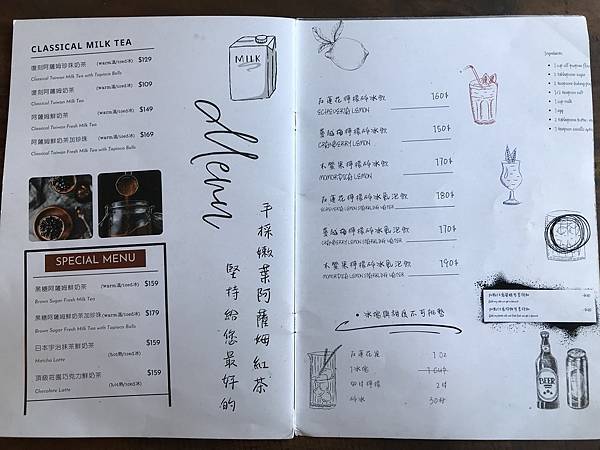 CLASSICAL MILK TEA
復刻阿薩姆珍珠奶茶 (warm溫/iced冰) $129
Classical Taiwan Milk Tea with Tapioca Balls
復刻阿薩姆奶茶 (warm溫/iced冰) $109
Classical Taiwan Milk Tea
阿薩姆鮮奶茶 (warm溫/iced冰) $149
Classical Taiwan Fresh Milk Tea
阿薩姆鮮奶茶加珍珠 (warm溫/iced冰) $169
Classical Taiwan Fresh Milk Tea with Tapioca Balls
SPECIAL MENU
黑糖阿薩姆鮮奶茶 (warm溫/iced冰) $159
Brown Sugar Fresh Milk Tea
黑糖阿薩姆鮮奶茶加珍珠 (warm溫/iced冰) $179
Brown Sugar Fresh Milk Tea with Tapioca Balls
日本宇治抹茶鮮奶茶 $159
(hot熱/iced冰)
Matcha Latte
頂級莊園巧克力鮮奶茶 $159
(hot熱/iced冰)
Chocolate Latte
MILK
Menu
手採嫩葉阿薩姆紅茶
堅持給您最好的
石蓮花檸檬碎冰飲 160$
ECHEVERIA LEMON
蔓越莓檸檬碎冰飲 150$
CRANBERRY LEMON
木鱉果檸檬碎冰飲 170$
MOMORDICA LEMON
石蓮花檸檬碎冰氣泡飲 180$
ECHEVERIA LEMON SPARKLING WATER
蔓越莓檸檬碎冰氣泡飲 170$
CRANBERRY LEMON SPARKLING WATER
木鱉果檸檬碎冰氣泡飲 190$
MOMORDICA LEMON SPARKLING WATER
• 冰塊與甜度不可調整
石蓮花 1 oz
切片檸檬 2片
碎冰 30片
Ingredients:
1 cup all purpose
2 tablespoons sugar
1 cup milk
1 egg
BEER